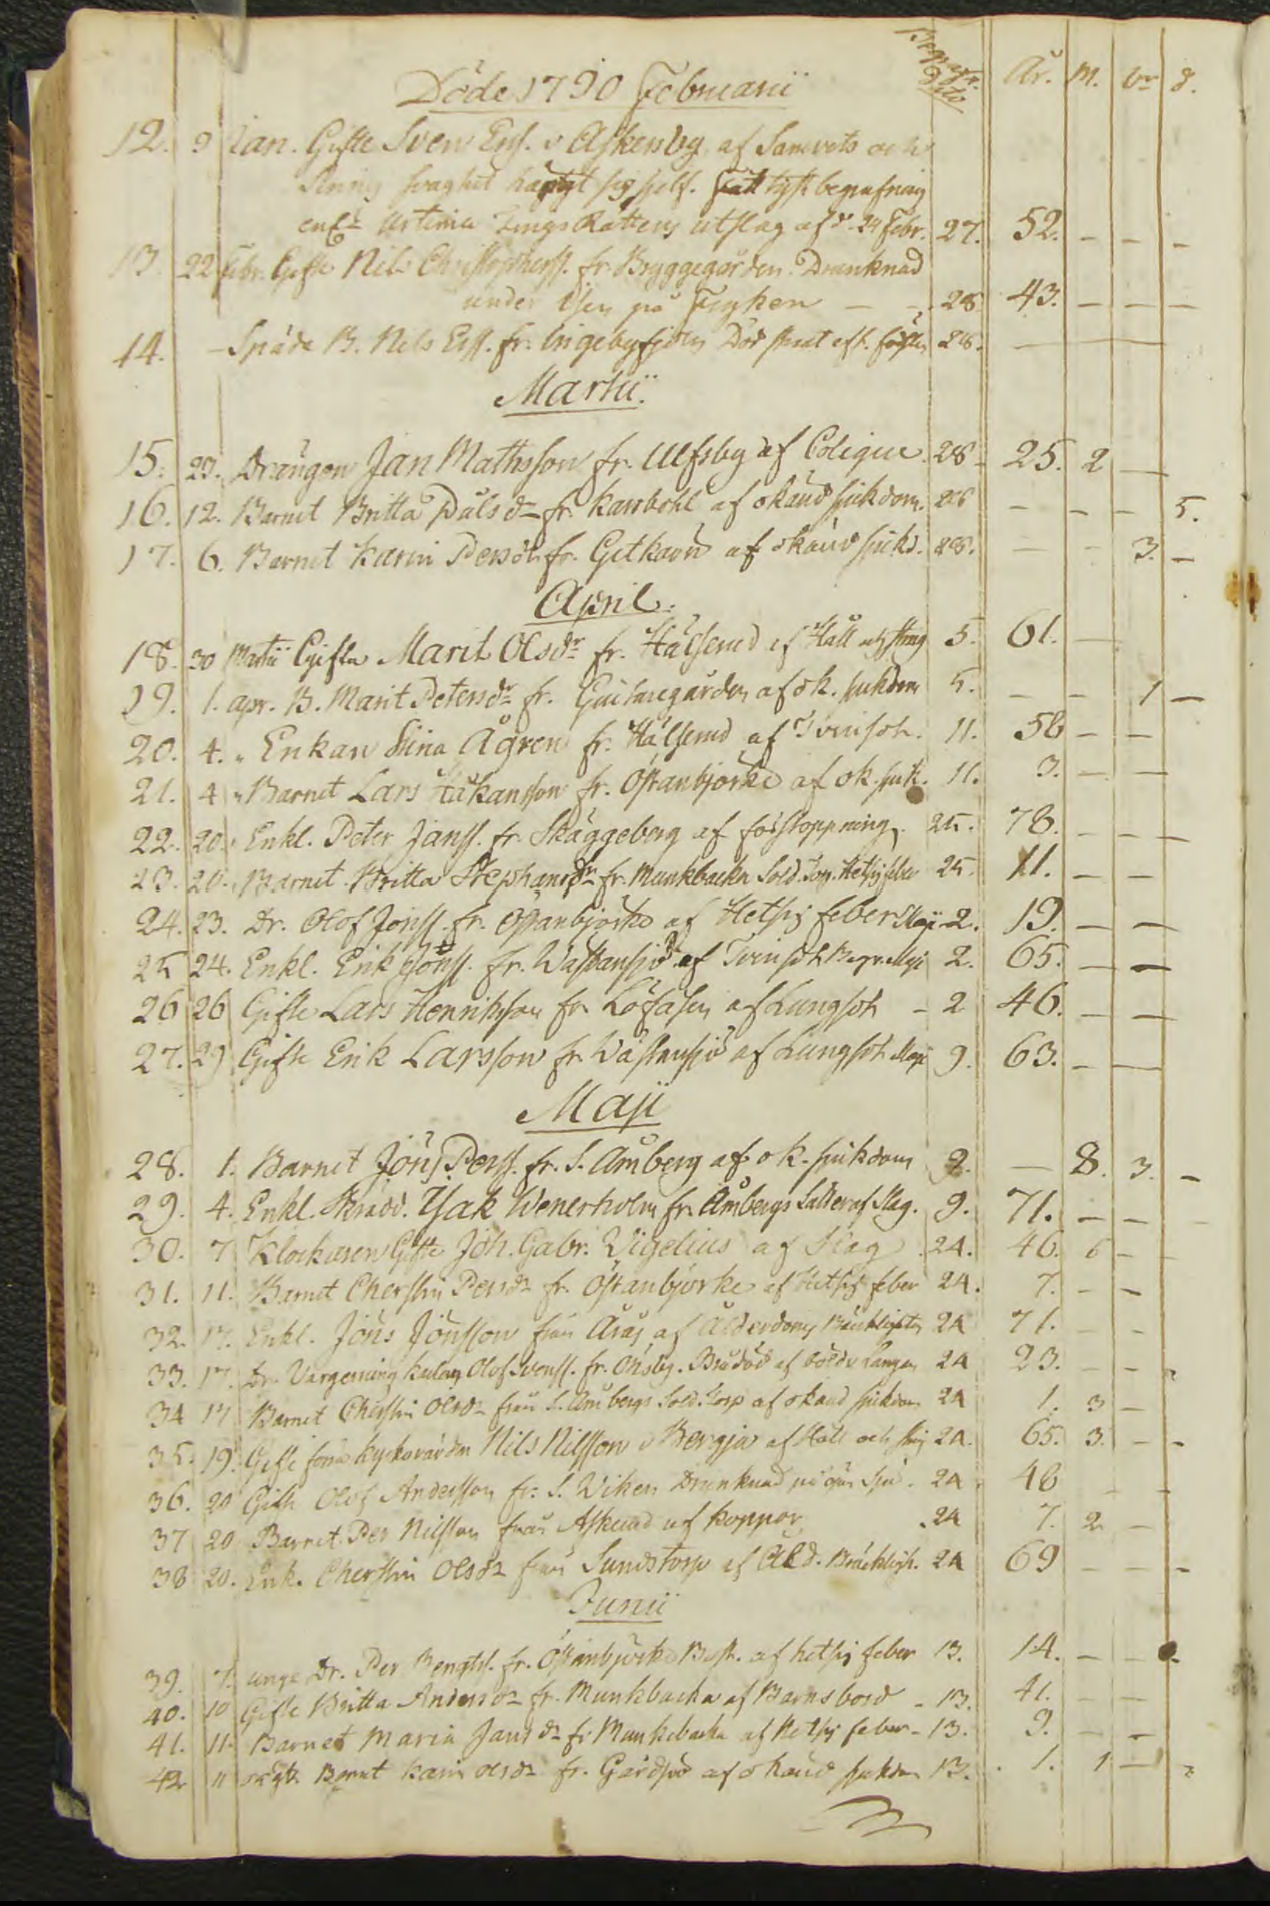 Döde 1790 Februarii Begrafn. Dito År. M. V. d.
12. 9 Jan. Gifte Sven Ers. i Askersby af Samvets och
Sinnes svaghet hängt sig sjelf. Fått tyst begrafning
enl. Urtima Tings Rättens utslag af d. 24 Febr. 27. 52. - - -
13. 22 Febr. Gifte Nils Christophersf. fr. Bryggegården. Dranknad
under Isen på Fryken - - 28 43. - - -
14. - Späda B. Nils Erss. fr. Ingebyfjolen Död strax eft. födslen 28. -
Martii.
15. 23. Drängen Jan Mathsson fr. Ulfsby af Colique. 28 - 25. 2 -
16. 12. Barnet Britta Påls dr fr. Karrbohl af okänd sjukdom. 28 - - - 5.
17. 6. Barnet Karin Persdr fr. Getkärn af okänd sjukd. 28. - - 3. -
April.
18. 30 Martii Gifta Marit Olsdr fr. Hälserud af Håll och Sting 5. 61. -
19. 1. apr. B. Marit Petersdr fr. af ok. sjukdom 5. - - 1 -
20. 4. " Enkan Stina Ågren fr. Hälserud af Tvinsot. 11. 58 - -
21. 4 " Barnet Lars Håkansson fr. Östanbjörke af ok. sjuk. 11. 3. - -
22. 20. " Enkl. Peter Janss. fr. Skäggeberg af förstoppning. 25. 78. - - -
23. 20. " Barnet Britta Stephansdr fr. Munkbacka Sold. Torp. Hetsig feber 25. 11. - -
24. 23. Dr. Olof Jonss. fr. Östanbjörke af Hetsig feber Maji 2. 19. - -
25 24. Enkl. Erik Jönss. fr. Wästansjö af Tvinsot Begr. Maji 2. 65. - -
26 26 Gifte Lars Henriksson fr. Löfåsen af Lungsot - 2 46. - -
27. 29 Gifte Erik Larsson fr. Wästansjö af Lungsot Maji 9. 63. - -
Maji
28. 1. Barnet Jöns Perss. fr. S. Åmberg af ok. sjukdom 9. - 8. 3. -
29. 4. Enkl. Skrädd. Isak Wenerholm fr. Åmbergs Sätter af Slag. 9. 71. - -
30. 7 Klockaren Gifte Joh. Gabr. Vigelius af Slag 24. 46. 6 -
31. 11. Barnet Cherstin Persdr fr. Östanbjörke af Hetsig feber 24. 7. - -
32. 17. Enkl. Jöns Jönsson från Årås af Ålderdoms Bräckligheter 24 71. - -
33. 17. Dr. Vargerings Karlen Olof Svenss. fr. Önsby. Brådöd af 24 23. - - -
34 17 Barnet Cherstin Olsdr från S. Åmbergs Sold. Torp af okänd sjukdom 24 1. 3 -
35. 19. Gifte förra Kyrkovärden Nils Nilsson i Bergja af Håll och Sting 24. 65. 3. - -
36. 20 Gifte Olof Andersson fr. S. Wiken Dranknad på Sjö. 24 48 - -
37 20 Barnet Per Nilsson från Askerud af koppor .24 7. 2 -
38 20. Enk. Cherstin Olsdr från Sundstorp af Åld. Bräckligh. 24 69 - - -
Junii
39. 7. unge Dr. Per Bengtss. fr. Östanbjörke Best. af hetsig feber 13. 14. - - -
40. 10 Gifte Britta Andersdr fr. Munkbacka af Barnsbörd - 13. 41. - -
41. 11. Barnet Maria Jansdr fr. Munkebacka af Hetsig feber - 13. 9. - -
42 11 oägta Barnet Karin Olsdr fr. Gårdsjö af okänd sjukdom 13. 1. 1 - -